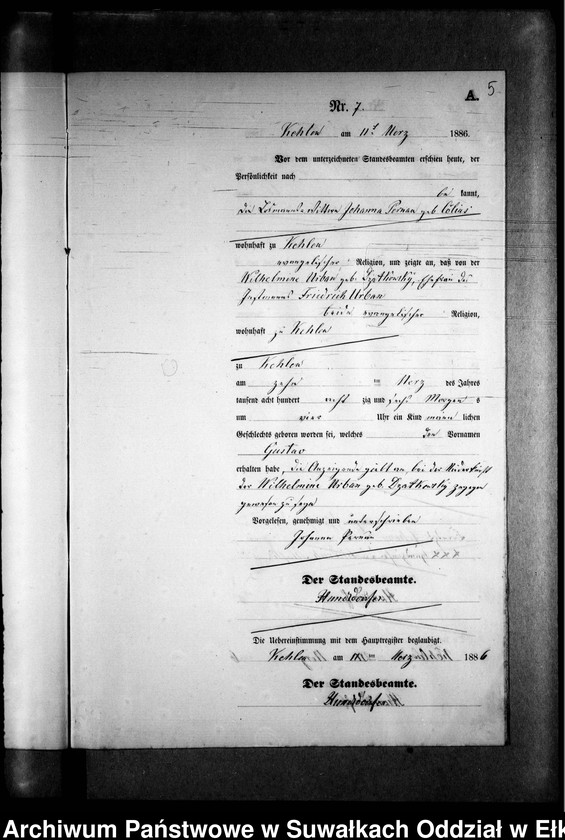 A. 5
Nr. 7.
Kehlen am 11t Merz 1886.
Vor dem unterzeichneten Standesbeamten erschien heute, der
Persönlichkeit nach
be kannt,
die Wittwe Johanna Pernau geb.
wohnhaft zu Kehlen
evangelischer Religion, und zeigte an, daß von der
Wilhelmine Urban geb. Dzatkowsky, Ehefrau des
Friedrich Urban
beide evangelischer Religion,
wohnhaft zu Kehlen
zu Kehlen
am zehn ten Merz des Jahres
tausend acht hundert acht zig und sechs Morgen s
um vier Uhr ein Kind männ lichen
Geschlechts geboren worden sei, welches den Vornamen
Gustav
erhalten habe, die Anzeigende giebt an, bei der Niederkunft
der Wilhelmine Urban geb. Dzatkowsky zugegen
gewesen zu seyn
Vorgelesen, genehmigt und unterschrieben
Johanna Pernau
Der Standesbeamte.
Die Uebereinstimmung mit dem Hauptregister beglaubigt.
Kehlen am ten Merz 1886
Der Standesbeamte.
Archiwum Państwowe w Suwałkach Oddział w Ełk